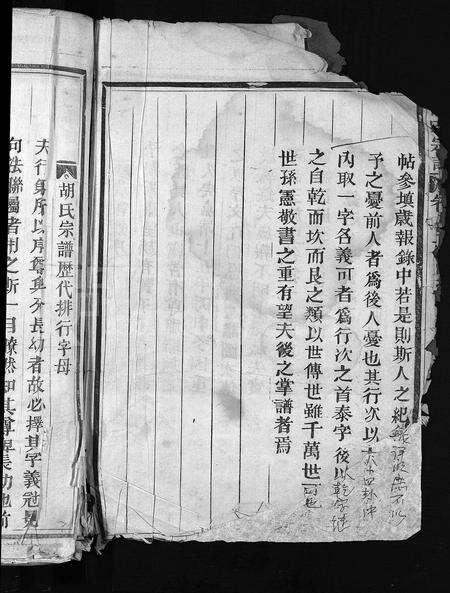 帖參填歲報錄中若是則斯人之紀
予之憂前人者爲後人憂也其行次以六十四卦中
內取一字名義可者爲行次之首泰字後以乾字继
之自乾而坎而艮之類以世傳世雖千萬世
世孫憲敬書之重有望夫後之掌譜者焉
胡氏宗譜歷代排行字母
夫行第所以序尊卑分長幼者故必擇其字義冠
向法聯屬者用之斯一目瞭然知其尊卑長幼也前